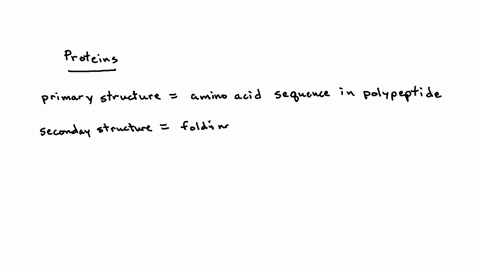 Proteins
primary structure = amino acid sequence in polypeptide
seconday structure = foldin